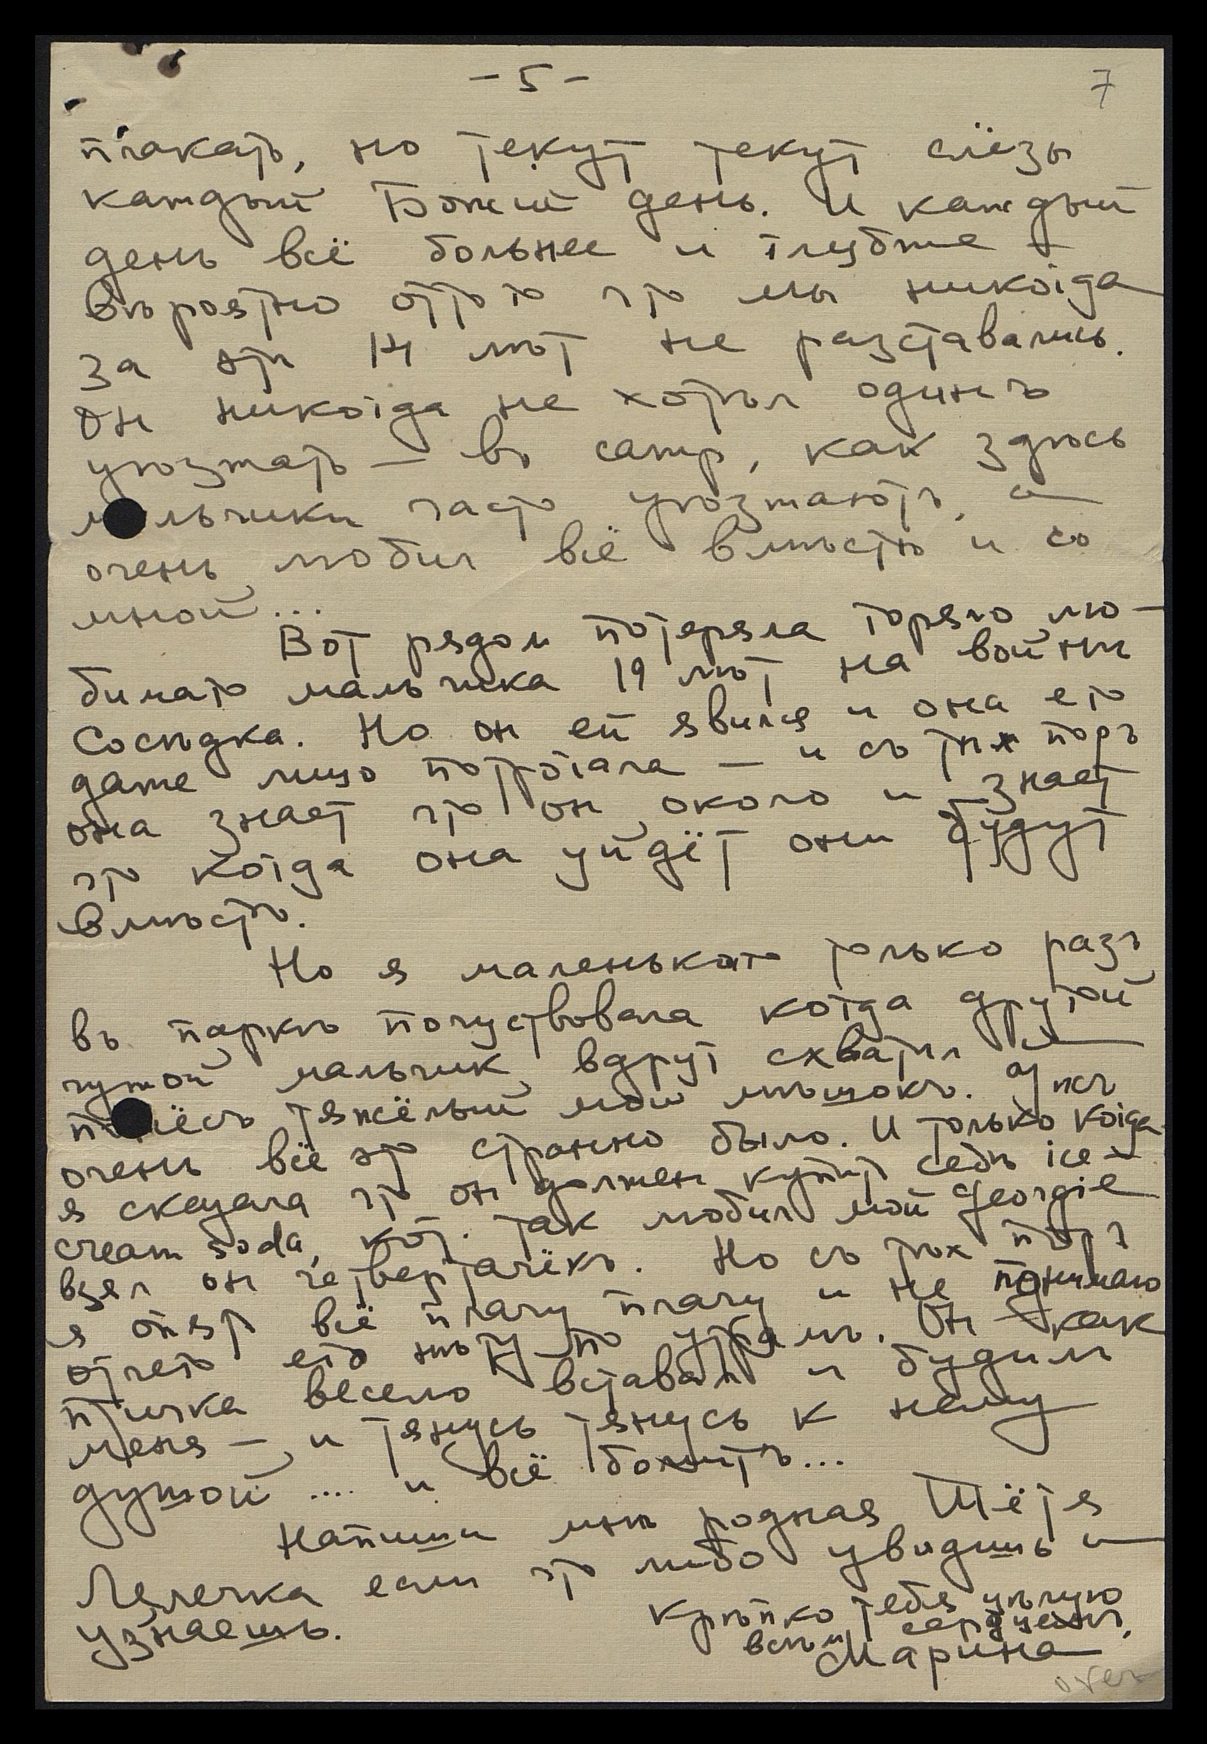 - 5 -
7
плакать, но текут текут слёзы
каждый Божий день. И каждый
день всё больнее и глубже –
вѣроятно оттого что мы никогда
за эти 14 лѣт не разставались.
Он никогда не хотѣл одинъ
уѣзжать — въ camp, как здѣсь
мальчики часто уѣзжаютъ, а
очень любил всё вмѣстѣ и со
мной...
Вот рядом потеряла горячо лю-
бимаго мальчика 19 лѣт на войнѣ
Сосѣдка. Но он ей явился и она его
даже лицо потрогала — и съ тѣх поръ
она знает что он около и знает
что когда она уйдёт они будут
вмѣстѣ.
Но я маленькаго только разъ
въ паркѣ почуствовала когда другой
чужой мальчик вдруг схватил и
понёсъ тяжёлый мой мѣшокъ. Ужъ
очень всё это странно было. И только когда
я сказала что он должен купить себѣ ice-
cream soda, кот. так любил мой Georgie
взял он четвертачёкъ. Но съ тѣх поръ
я опять всё плачу плачу и не понимаю
отчего его нѣту по утрамъ. Он как
птичка весело вставал и будил
меня — и тянусь тянусь к нему
душой .... и всё болитъ...
Напиши мнѣ родная Тётя
Лялечка если что либо увидишь и
узнаешь.
Крѣпко тебя цѣлую
всѣм сердцемъ,
Марина
over